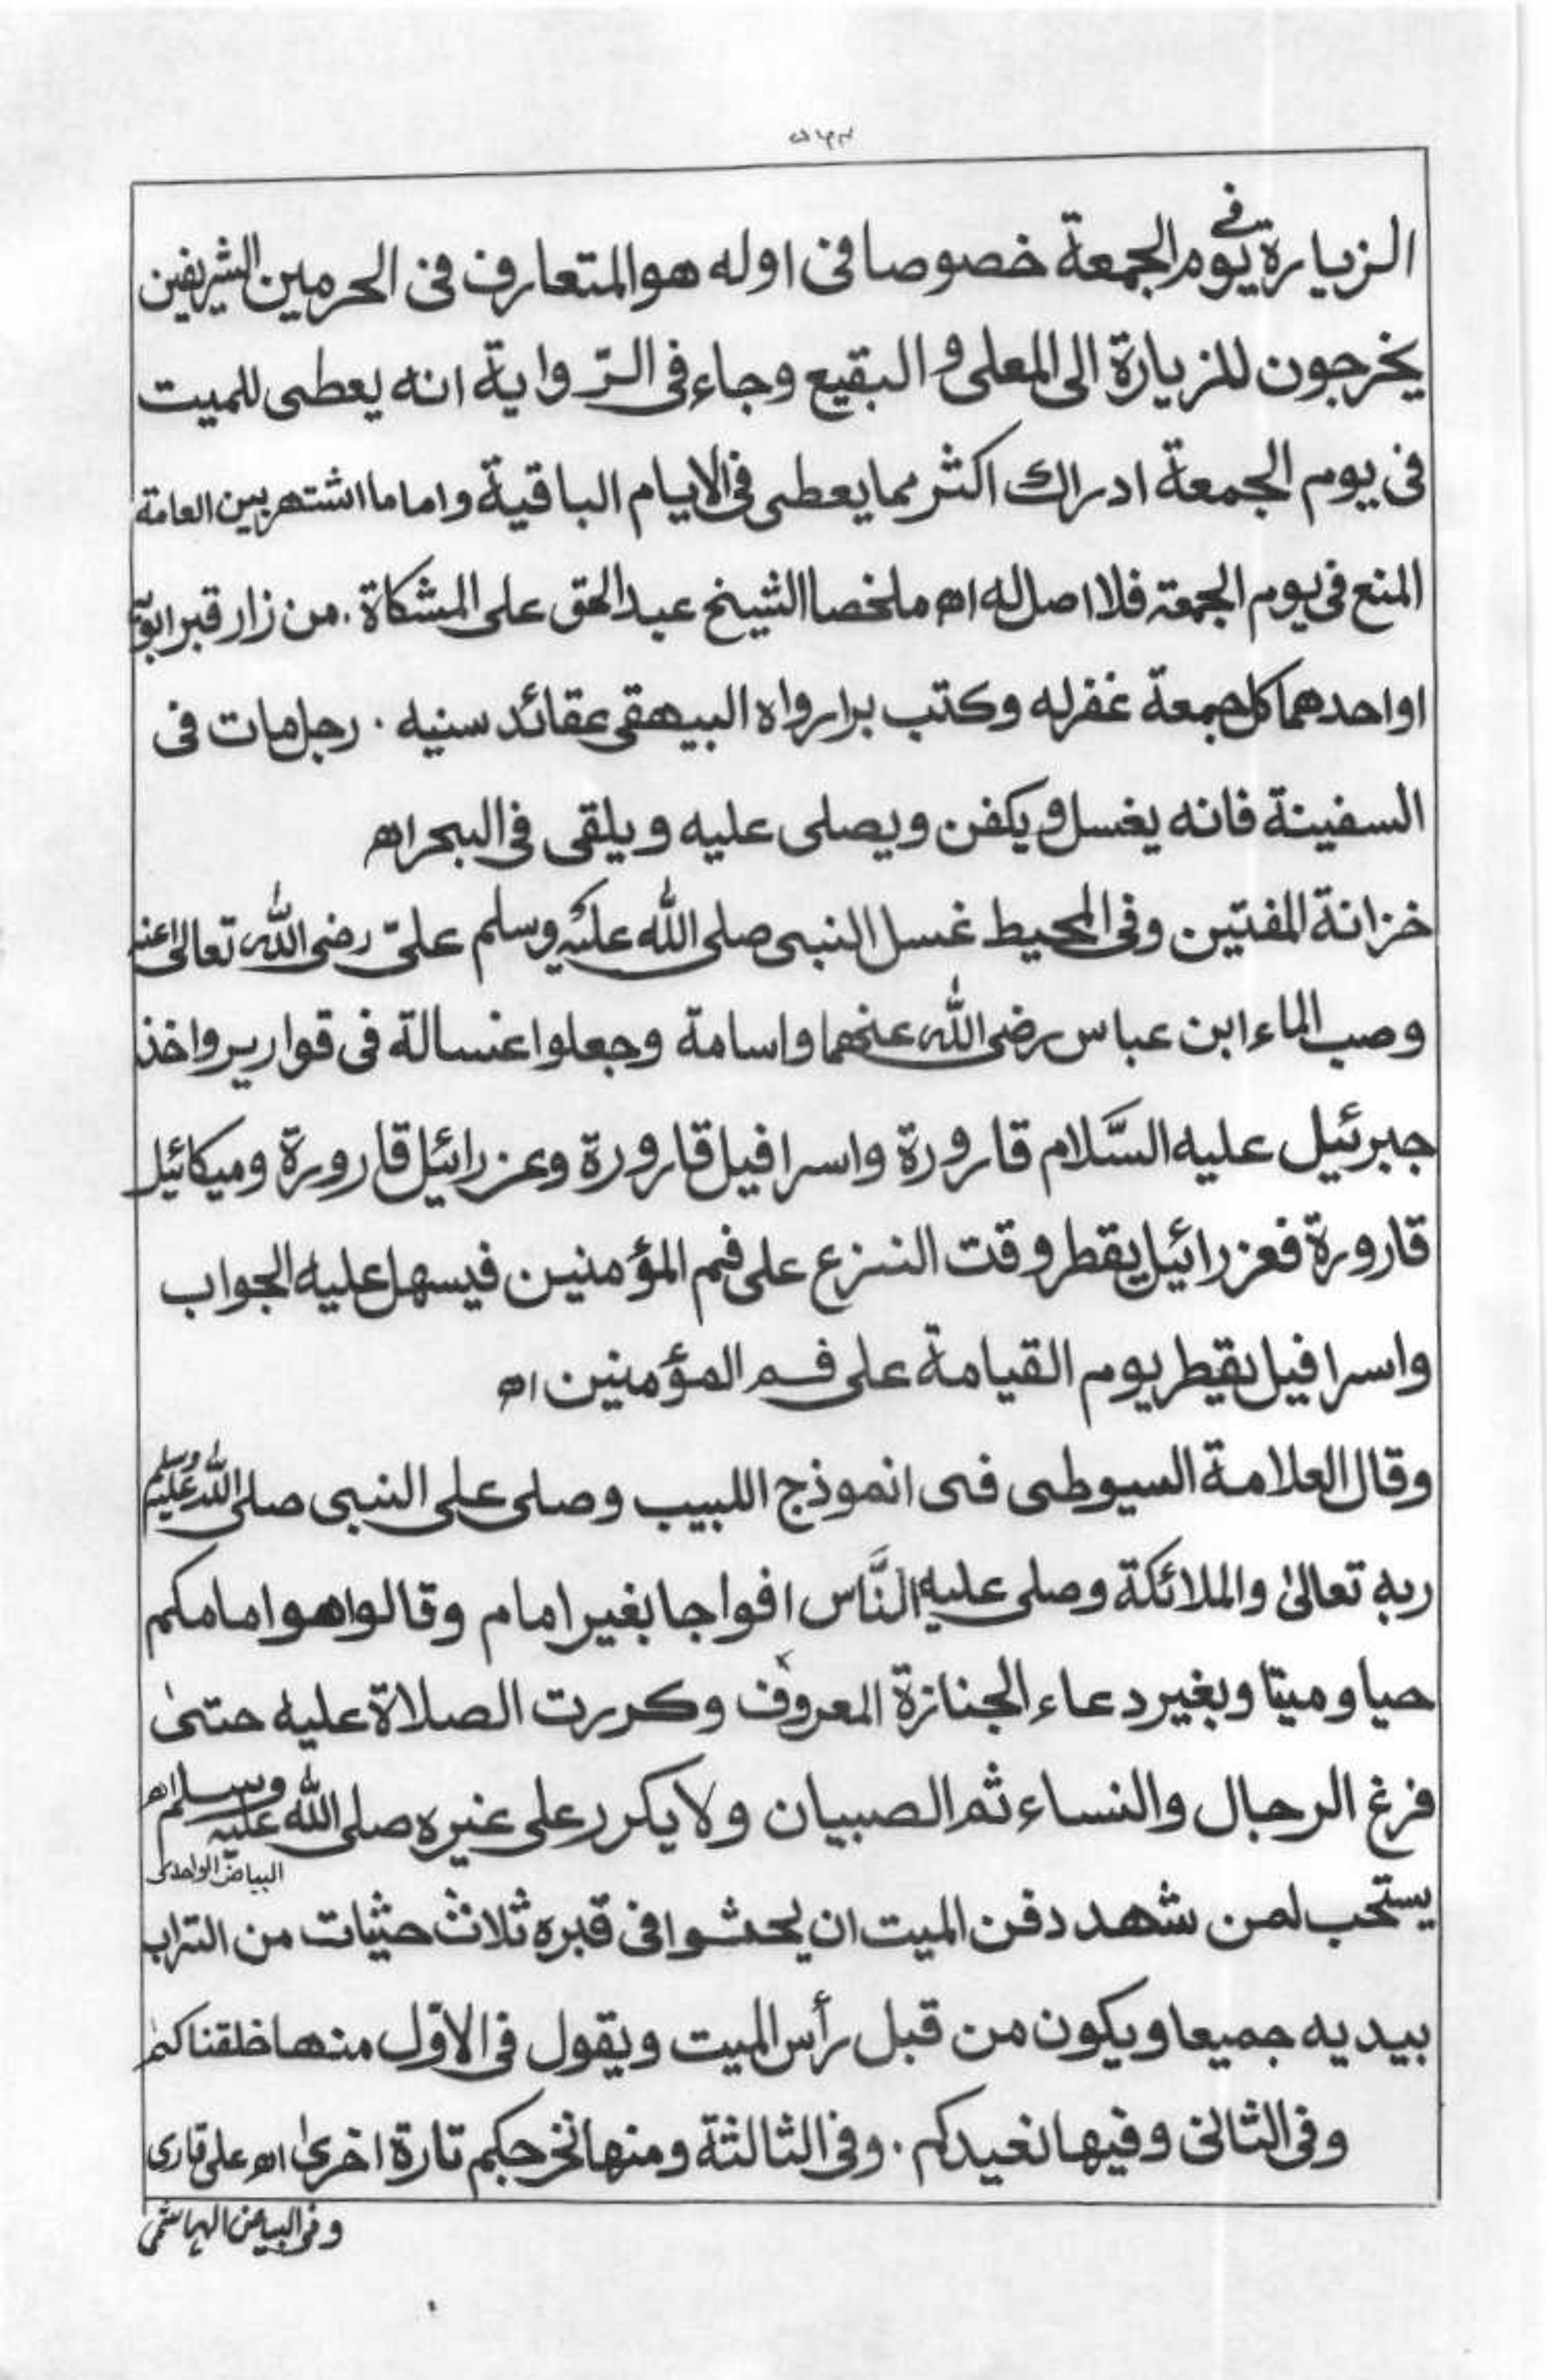 الزيارة في يوم الجمعة خصوصا فى اوله هو المتعارف فى الحرمين الشريفين
يخرجون للزيارة الى المعلى و البقيع وجاء فى الرّواية انه يعطى للميت
فى يوم الجمعة ادراك اكثر مما يعطى فى الايام الباقية واما ما اشتهر بين العامة
المنع فى يوم الجمعة فلا اصل له اه ملخصا الشيخ عبد الحق على المشكاة . من زار قبر ابويه
او احدهما كل جمعة غفر له وكتب برا رواه البيهقى عقائد سنيه . رجل مات فى
السفينة فانه يغسل و يكفن ويصلى عليه ويلقى فى البحر اه
خزانة المفتين وفى المحيط غسل النبى صلى الله عليه وسلم علىّ رضى الله تعالى عنه
وصب الماء ابن عباس رضى الله عنهما واسامة وجعلوا غسالة فى قوارير واخذ
جبرئيل عليه السَّلام قارورة واسرافيل قارورة وعزرائيل قارورة وميكائيل
قارورة فعزرائيل يقطر وقت النزع على فم المؤمنين فيسهل عليه الجواب
واسرافيل يقيطر يوم القيامة على فم المؤمنين اه
وقال العلامة السيوطى فى انموذج اللبيب وصلى على النبى صلى الله عليه وسلم
ربه تعالىٰ والملائكة وصلى عليه النَّاس افواجا بغير امام وقالوا هو امامكم
حيا وميتا وبغير دعاء الجنازة المعروف وكررت الصلاة عليه حتىٰ
فرغ الرجال والنساء ثم الصبيان ولا يكرر على غيره صلى الله عليه وسلم اه
البياض الواحدى
يستحب لمن شهد دفن الميت ان يحثوا فى قبره ثلاث حثيات من التراب
بيديه جميعا ويكون من قبل رأس الميت ويقول فى الاوّل منها خلقناكم
وفى الثانى وفيها نعيدكم . وفى الثالثة ومنها نخرجكم تارة اخرىٰ اه على قارى
وفى البياض الهاشمى